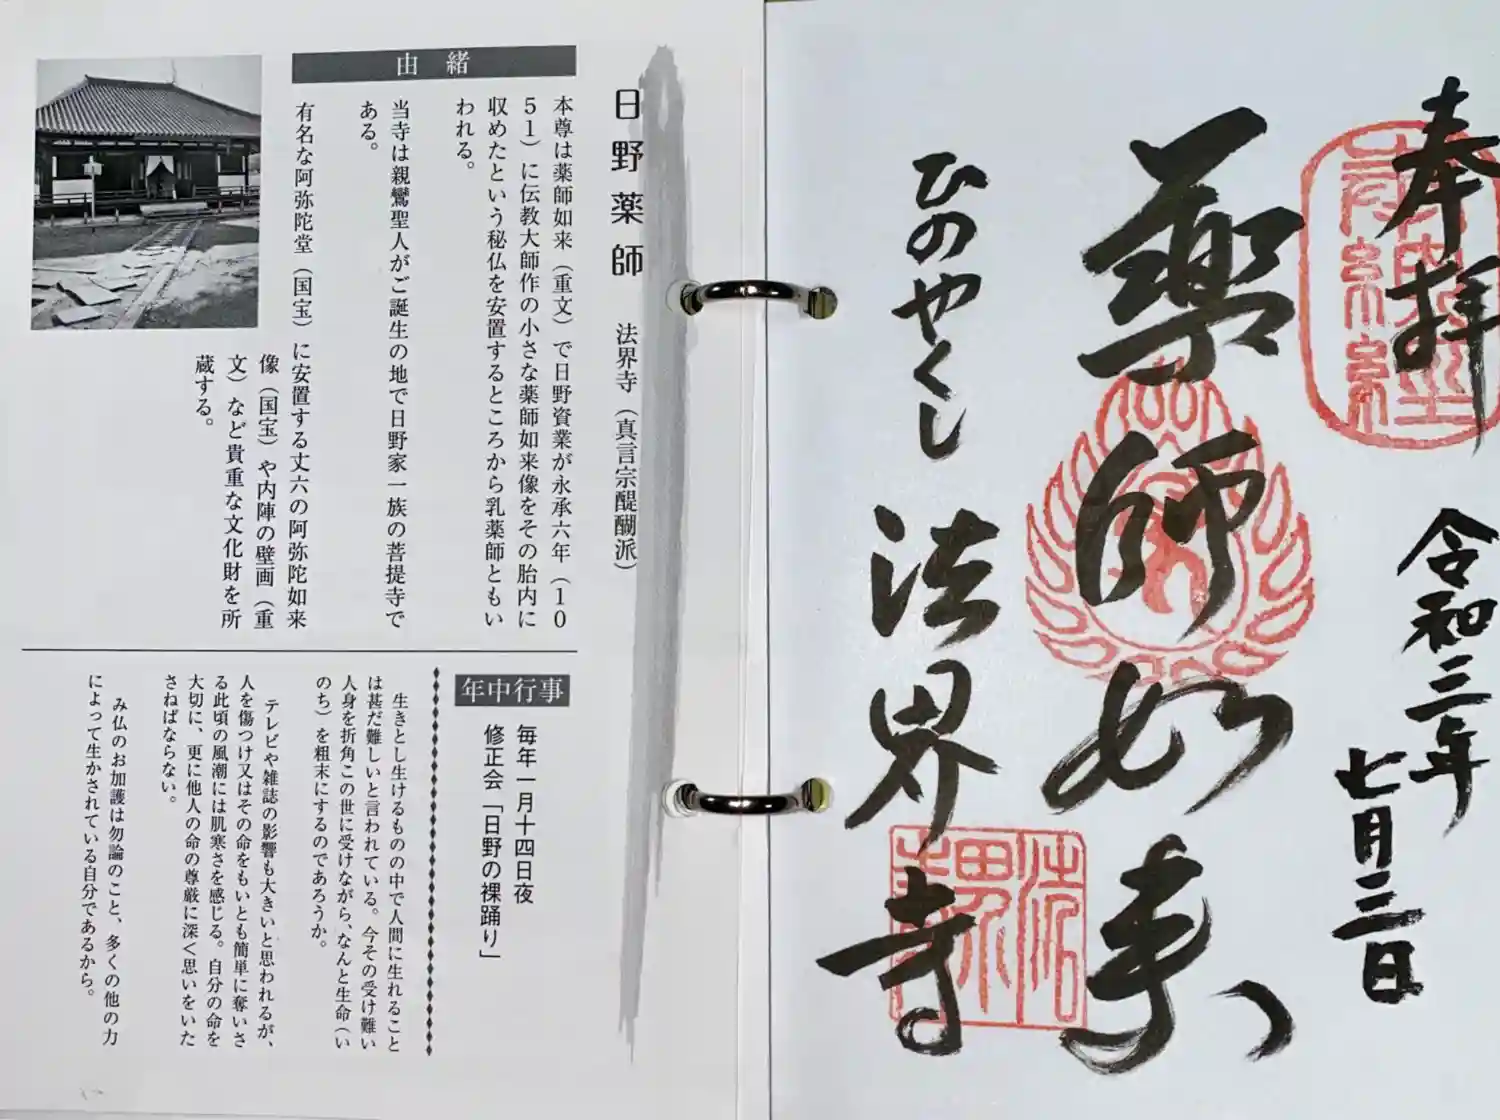 奉拝
令和三年
七月三日
薬師如来
ひのやくし
法界寺
日野薬師 法界寺(真言宗醍醐派)
由緒
本尊は薬師如来(重文)で日野資業が永承六年(10
51)に伝教大師作の小さな薬師如来像をその胎内に
収めたという秘仏を安置するところから乳薬師ともい
われる。
当寺は親鸞聖人がご誕生の地で日野家一族の菩提寺で
ある。
有名な阿弥陀堂(国宝)に安置する丈六の阿弥陀如来
像(国宝)や内陣の壁画(重
文)など貴重な文化財を所
蔵する。
年中行事
毎年一月十四日夜
修正会「日野の裸踊り」
生きとし生けるものの中で人間に生れること
は甚だ難しいと言われている。今その受け難い
人身を折角この世に受けながら、なんと生命(い
のち)を粗末にするのであろうか。
テレビや雑誌の影響も大きいと思われるが、
人を傷つけ又はその命をもいとも簡単に奪いさ
る此頃の風潮には肌寒さを感じる。自分の命を
大切に、更に他人の命の尊厳に深く思いをいた
さねばならない。
み仏のお加護は勿論のこと、多くの他の力
によって生かされている自分であるから。